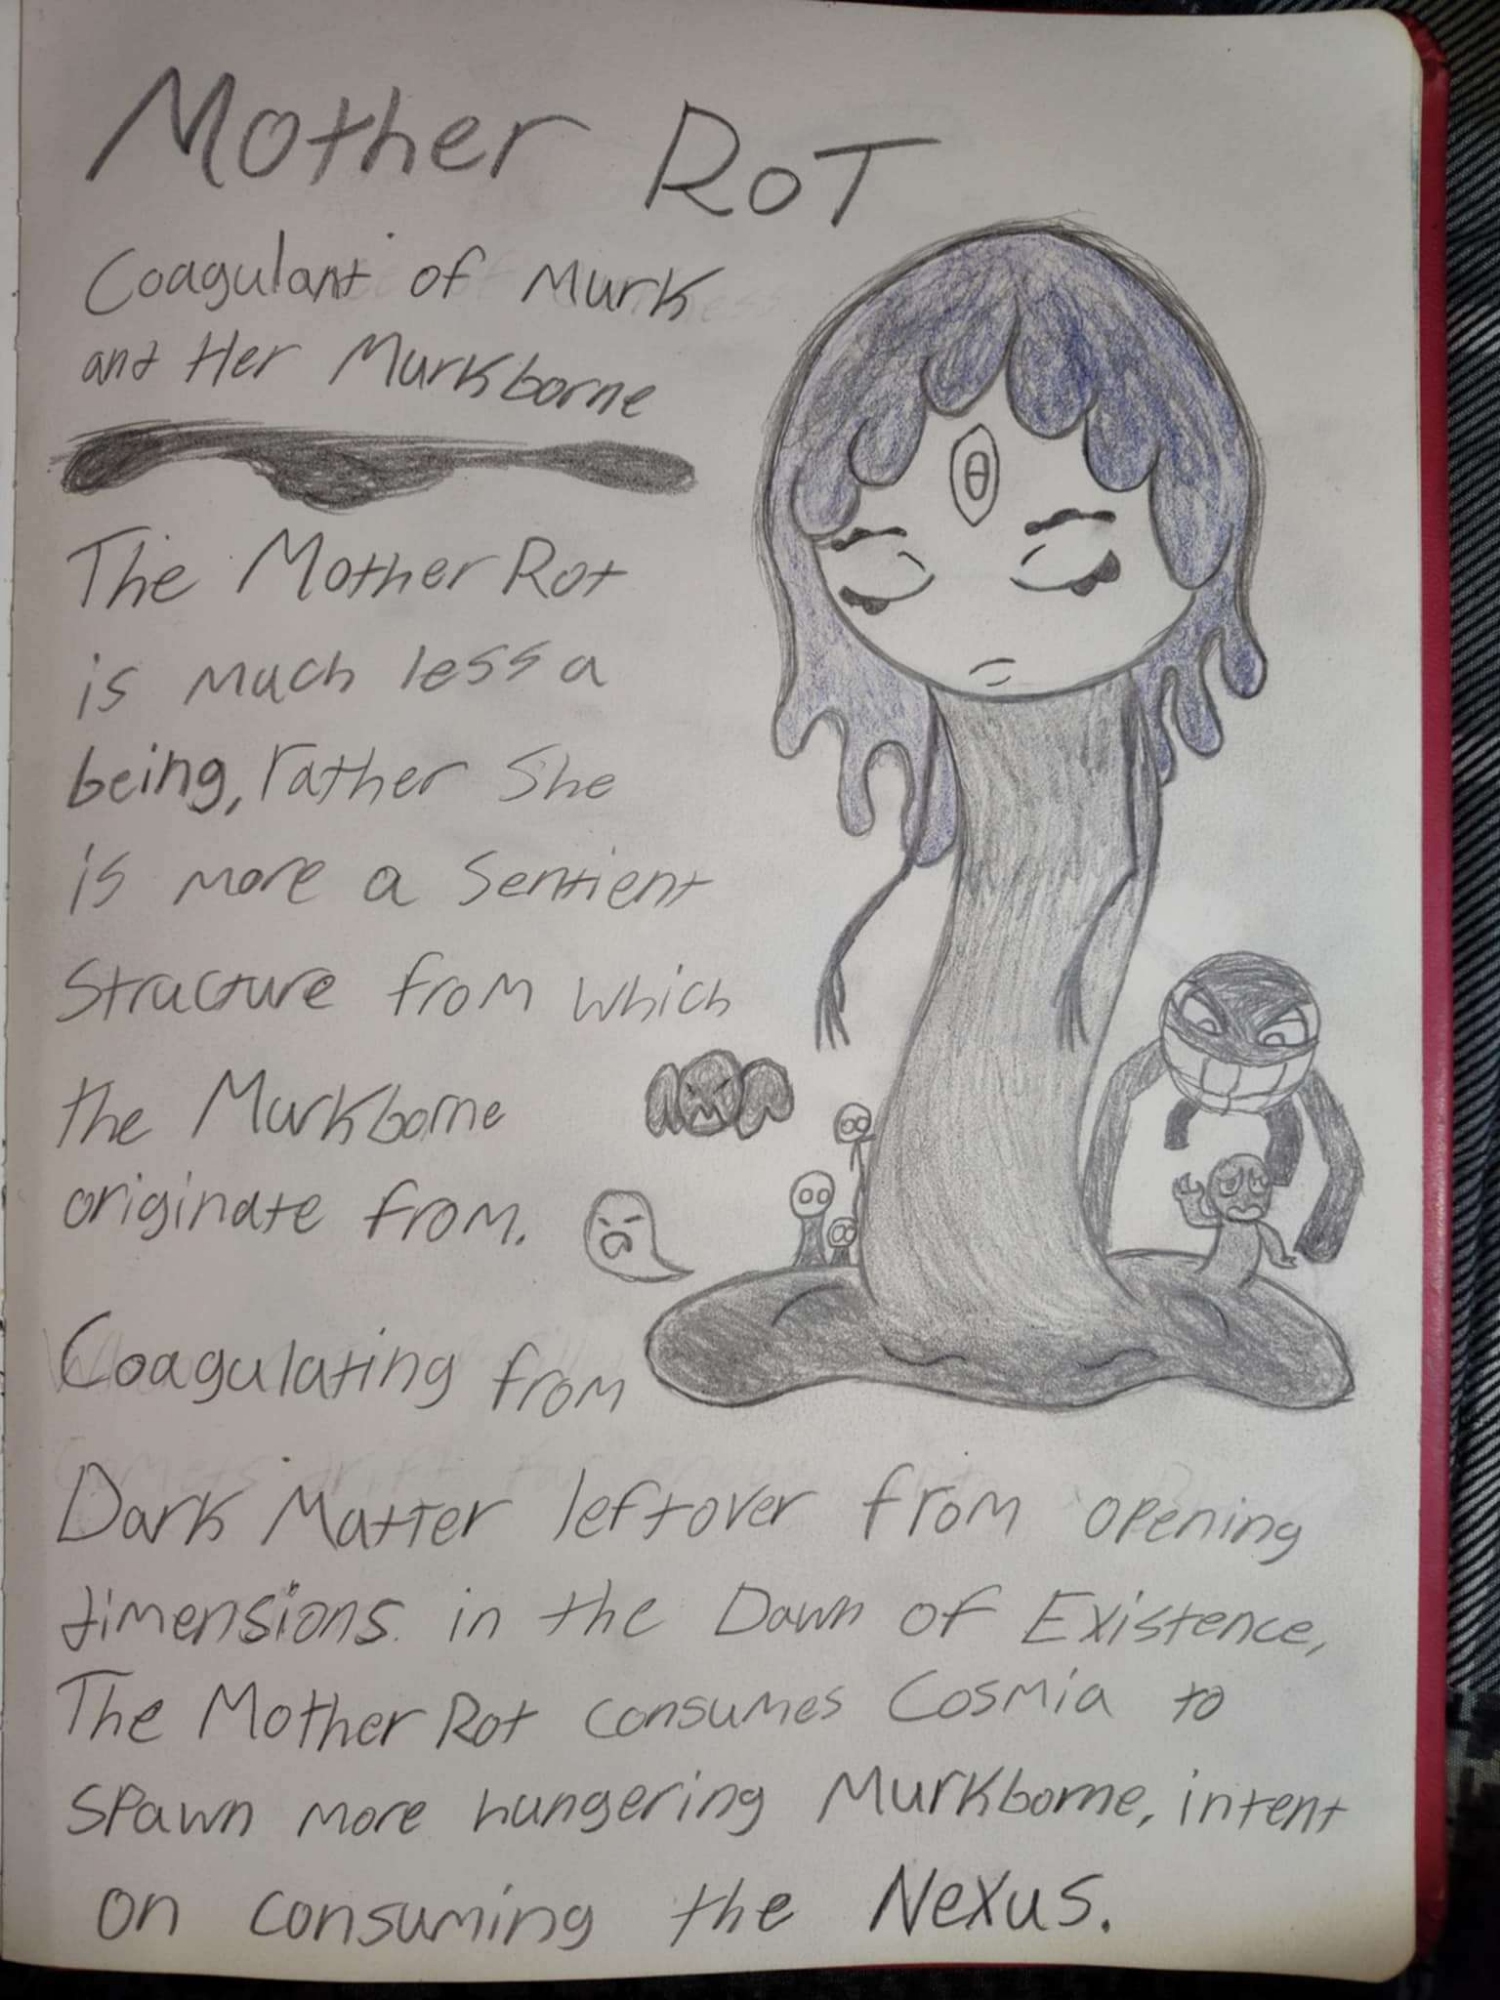 Mother Rot
Coagulant of Murk
and Her Murkborne
The Mother Rot
is much less a
being, rather She
is more a Sentient
Structure from which
the Murkborne
originate from.
Coagulating from
Dark Matter leftover from opening
dimensions in the Dawn of Existence,
The Mother Rot consumes Cosmia to
spawn more hungering Murkborne, intent
on consuming the Nexus.